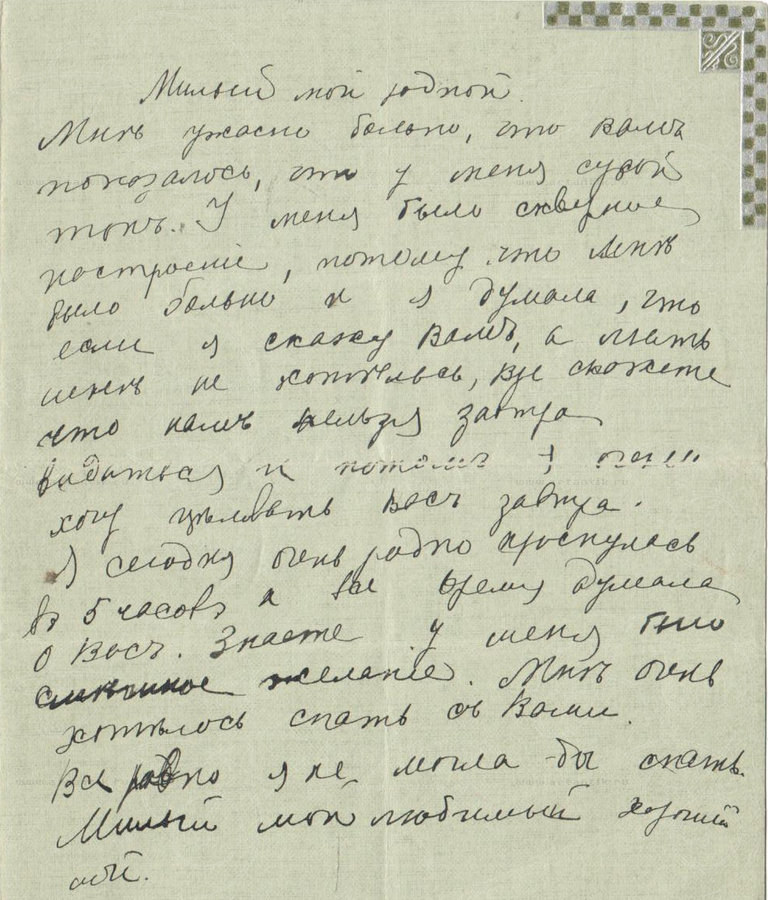 Милый мой родной.
Мнѣ ужасно больно, что Вамъ
показалось, что у меня сухой
тонъ. У меня было скверное
настроеніе, потому что мнѣ
было больно и я думала, что
если я скажу Вамъ, а лгать
мнѣ не хотѣлось, Вы скажете
что намъ нельзя завтра
видиться и потомъ я очень
хочу цѣловать Васъ завтра.
Я сегодня очень рано проснулась
въ 5 часовъ и все время думала
о Васъ. Знаете у меня было
желаніе. Мнѣ очень
хотѣлось спать съ Вами.
Все равно я не могла бы спать.
Милый мой любимый хорошій
мой.